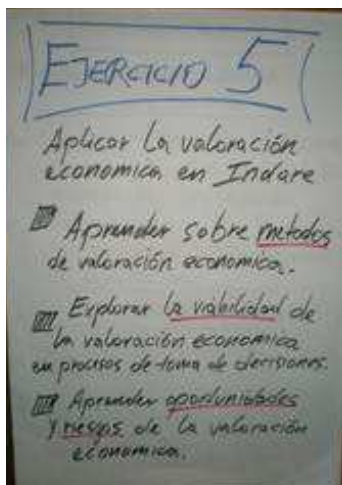 EJERCICIO 5
Aplicar la valoración
economica en Indare
Aprender sobre metodos
de valoración economica.
Explorar la viabilidad de
la valoración economica
en procesos de toma de decisiones.
Aprender oportunidades
y riesgos de la valoración
economica.